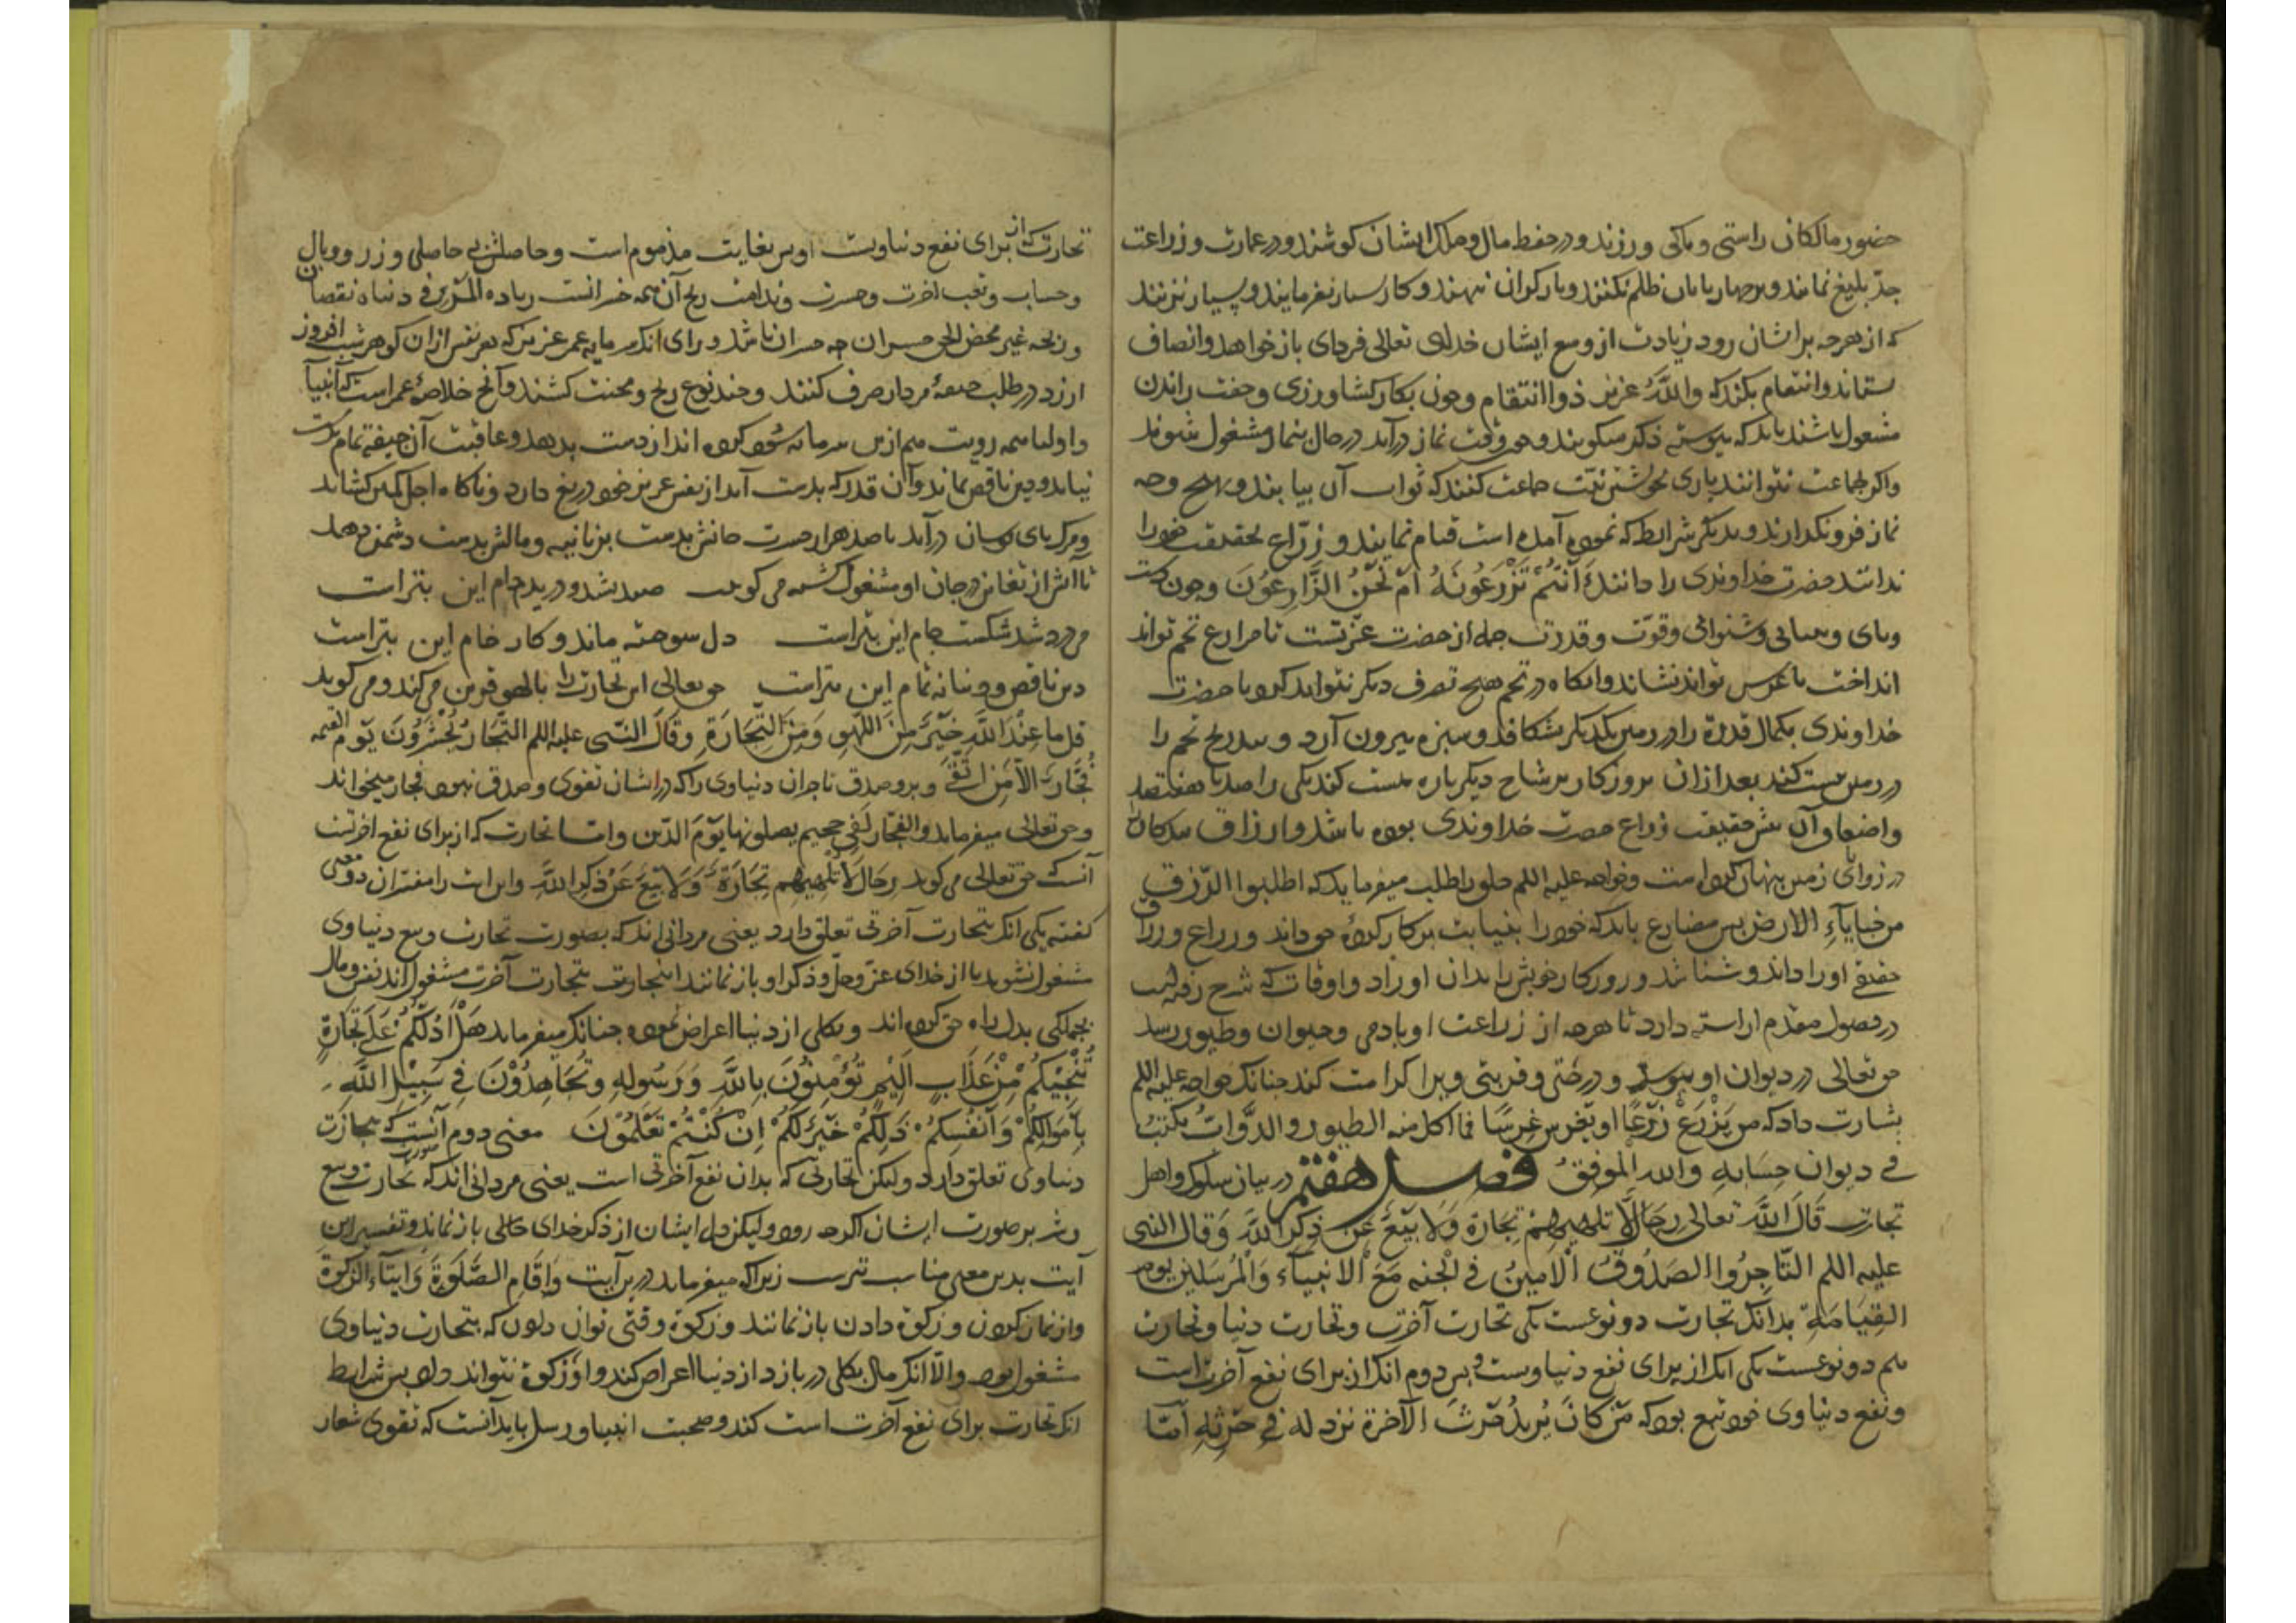 حضور مالکان راستی و پاکی ورزند و در حفظ مال و ملک ایشان کوشند و در عمارت و زراعت
جدّ بلیغ نمایند و بر چهارپایان ظلم نکنند و بار کران ننهند و کار بسیار نفرمایند و بسیار نزنند
که از هرچه بر ایشان رود زیادت از وسع ایشان خدای تعالی فردای باز خواهد و انصاف
ستاند و انتقام بکند که والله عزیز ذو انتقام و چون بکار کشاورزی و جفت راندن
مشغول باشند باید که پیوسته ذکر میکویند و چون وقت نماز درآید در حال بنماز مشغول شوند
واکر بجماعت نتوانند باری نیّت جماعت کنند که ثواب آن بیابند و بهیچ وجه
نماز فرونکذارند و بدیکر شرایط که نموده آمده است قیام نمایند و زرّاع بحقیقت خود را
ندانند حضرت خداوندی را دانند که أَنْتُمْ تَزْرَعُونَهُ أَمْ نَحْنُ الزَّارِعُونَ و چون دست
وپای و بینائی و شنوائی و قوّت و قدرت جمله از حضرت عزّتست تا مزارع تخم تواند
انداخت یا غرس تواند نشاند و آنکاه در تخم هیچ تصرف دیکر نتواند کرد با حضرت
خداوندی بکمال قدرة را در زمین یکدیکر بشکافد و سبزه بیرون آرد و بتدریج تخم را
در زمین نیست کند بعد از آن بروزکار بر شاخ دیکر باره هست کند یکی را صد تا هفتصد
واضعاف آن پس حقیقت زراع حضرت خداوندی بوده باشد و ارزاق بندکان
در زوایای زمین پنهان کرده است و خواجه علیه السلم خلق را طلب میفرماید که اطلبوا الرّزق
من خبایاء الارض پس مضارع باید که خود را بنیابت بر کار کرده حق داند و زراع و رزاق
حقیقی او را داند و شناسد و روزکار خویش را بدان اوراد و اوقات که شرح رفته است
در فصول مقدم آراسته دارد تا هرچه از زراعت او بآدمی و حیوان و طیور رسد
حق تعالی در دیوان او بنویسد و درجتی و قربتی ویرا کرامت کند چنانکه خواجه علیه السلم
بشارت داد که من یَزْرَعْ زَرْعًا او یغرس غرسًا فما اکل منه الطیور والدّوابّ یکتب
فی دیوان حسابه والله الموفق فصل هفتم در بیان سلوک اهل
تجارت قَالَ اللهُ تعالی رِجَالٌ لَا تُلْهِیهِمْ تِجَارَةٌ وَلَا بَیْعٌ عَنْ ذِکْرِ اللهِ وَقَالَ النبی
علیه السلم التّاجِرُ الصَدُوقُ الْأَمِینُ فی الْجنه مَعَ الْانبیآء وَالْمُرْسَلِینَ یوم
القِیَامَةِ بدانک تجارت دو نوعست یکی تجارت آخرت و تجارت دنیا و تجارت
هم دو نوعست یکی آنک از برای نفع دنیاوست و بس دوم آنک از برای نفع آخرت است
ونفع دنیاوی خود تبع بود که مَنْ کَانَ یُرِیدُ حَرْثَ الْآخِرَةِ نَزِدْ لَهُ فِی حَرْثِهِ امّا
تجارت که از برای نفع دنیاوست و بس بغایت مذموم است و حاصلش بی حاصلی و زر و وبال
وحساب و تعب آخرت و حسرت و ندامت ربح آن همه خسرانست
ارزد در طلب جیفهٔ مردار صرف کنند و چند نوع رنج و محنت کشند و آنچ خلاصهٔ عمر است که انبیآ
نیاید و دین ناقص بماند و آن قدر که بدست آید از نفس عزیز خود دریغ دارد و ناکاه اجل کمین کشاند
ومرک پای در میان درآید با صد هزار حسرت جانش بدست زبانیه و مالش بدست دشمن دهد
تا آتش از تغابن در جان او مشغول کشته می کوید صید شد و درید دام این بتر است
می درد شد شکست جام این بتر است دل سوخته ماند و کار خام این بتر است
دین ناقص و دنیا نه تمام این بتر است حق تعالی این تجارت را بالهو قرین می کند و می کوید
قل ما عِنْدَ اللهِ خَیْرٌ مِنَ اللَّهْوِ وَمِنَ التِّجَارَةِ وَقَالَ النبی علیه السلم التُّجَّارُ یُحْشَرُونَ یَوْمَ القیمه
فُجَّارًا اِلَّا مَنِ اتَّقَی وبرّ وصدق تاجران دنیاوی را که در ایشان تقوی و صدق نبود فجار میخواند
وحق تعالی میفرماید والفجّار لَفِی جحیم یصلونها یَوْمَ الدّین و امّا تجارت که از برای نفع آخرتست
آنست که حق تعالی می کوید رجالٌ لَا تُلْهِیهِمْ تِجَارَةٌ وَلَا بَیْعٌ عَنْ ذِکْرِ اللهِ و این آیت را مفسران دو معنی
کفته یکی آنک بتجارت آخرتی تعلق دارد یعنی مردانی اند که بصورت تجارت و بیع دنیاوی
مشغول نشوند تا از خدای عزّ وجلّ و ذکر او باز نمانند بتجارت آخرت مشغول اند نفس و مال
بجملکی بدل راه حق کرده اند و بکلی از دنیا اعراض نموده چنانک میفرماید هَلْ أَدُلُّکُمْ عَلَی تِجَارَةٍ
تُنْجِیکُمْ مِنْ عَذَابٍ أَلِیمٍ تُؤْمِنُونَ بِاللهِ وَرَسُولِهِ وَتُجَاهِدُونَ فِی سَبِیلِ اللهِ
بِأَمْوَالِکُمْ وَأَنْفُسِکُمْ ذَلِکُمْ خَیْرٌ لَکُمْ إِنْ کُنْتُمْ تَعْلَمُونَ معنی دوم آنست که بتجارت
دنیاوی تعلق دارد ولکن تجارتی که بدان نفع آخرتی است یعنی مردانی اند که تجارت و بیع
وشر بر صورت ایشان اکرچه رود ولیکن دل ایشان از ذکر خدای خالی باز نماند و تفسیر این
آیت بدین معنی مناسب ترست زیرا که میفرماید در برآیت وَاِقَامِ الصَّلَوةِ وَاِیتَاءِ الزَّکوةِ
واز نماز کردن و زکوة دادن باز نمانند و زکوة وقتی توان دادن که بتجارت دنیاوی
مشغول بود والّا آنک مال بکلی در بازد از دنیا اعراض کند و او زکوة نتواند داد پس شرایط
آنک تجارت برای نفع آخرت است کند و صحبت انبیا و رسل یابد آنست که تقوی شعار